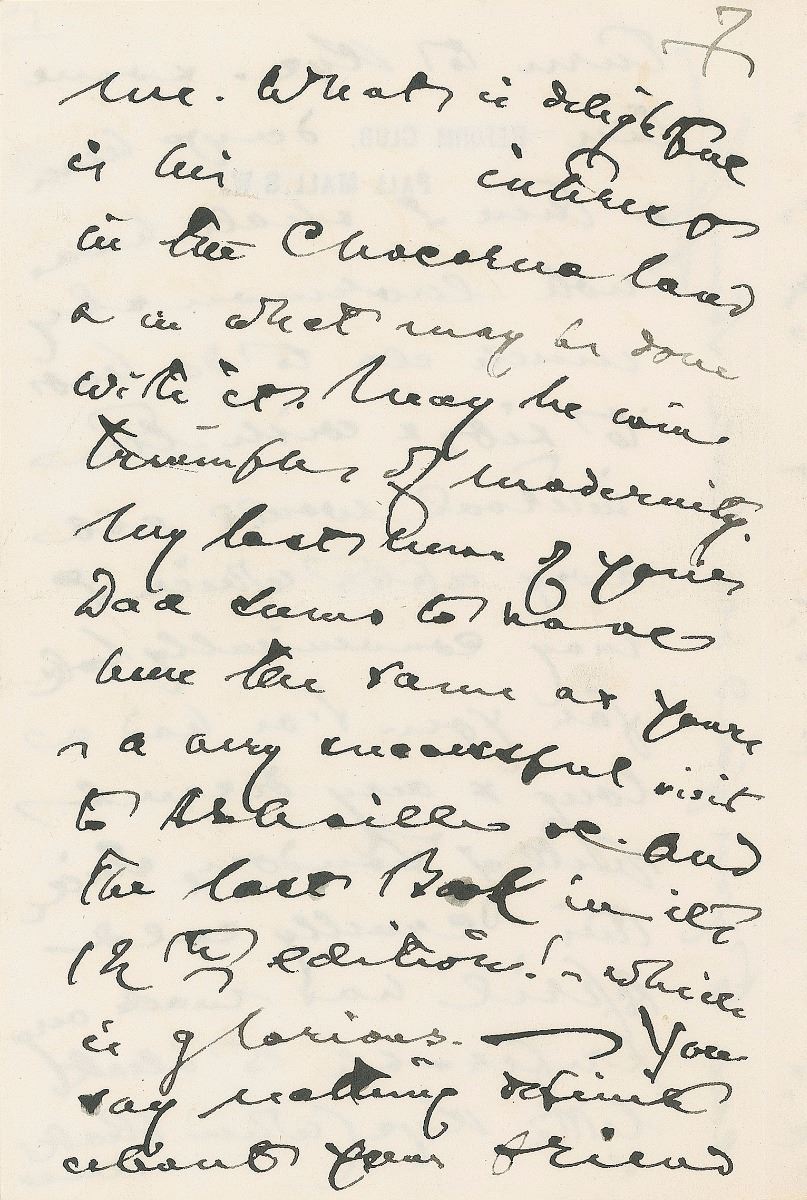 7
me. What is delightful
is his interest
in the Chocorua land
& in what may be done
with it. May he win
triumphs of modernity.
My last news of your
Dad seems to have
been the same as yours
- a very successful visit
to Versailles &c. And
the last Book in its
12th edition! - which
is glorious. — You
say nothing definite
about your friend